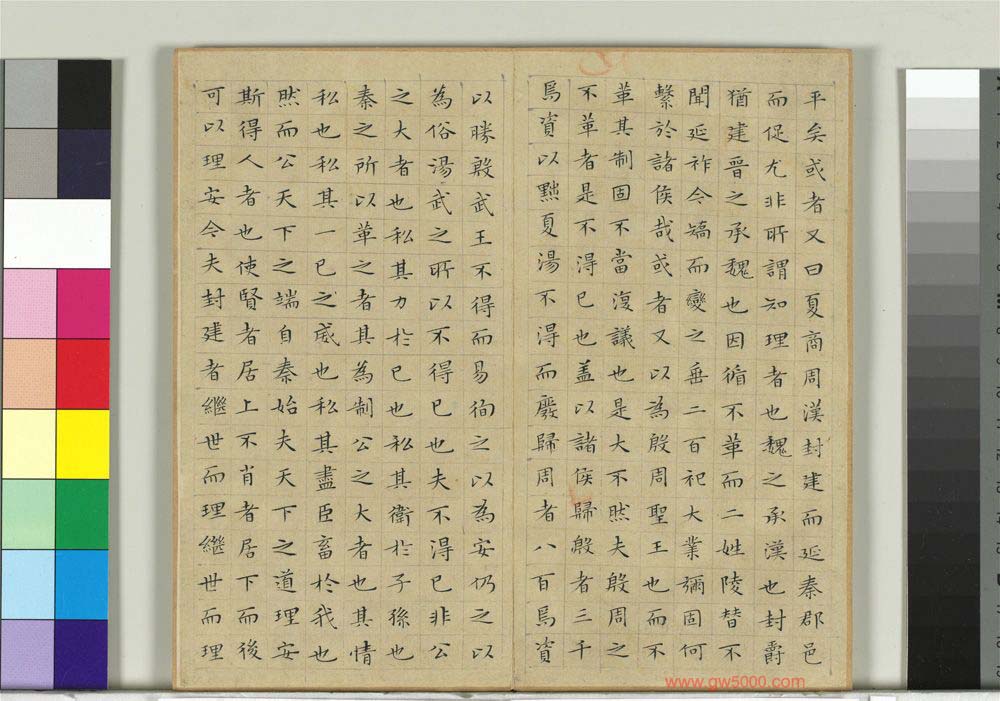 平矣或者又曰夏商周漢封建而延秦郡邑
而促尤非所謂知理者也魏之承漢也封爵
猶建晉之承魏也因循不革而二姓陵替不
聞延祚今矯而變之垂二百祀大業彌固何
繫於諸侯哉或者又以為殷周聖王也而不
革其制固不當復議也是大不然夫殷周之
不革者是不得已也盖以諸侯歸殷者三千
焉資以黜夏湯不得而廢歸周者八百焉資
以勝殷武王不得而易徇之以為安仍之以
為俗湯武之所以不得已也夫不得已非公
之大者也私其力於已也私其衛於子孫也
秦之所以革之者其為制公之大者也其情
私也私其一已之威也私其盡臣畜於我也
然而公天下之端自秦始夫天下之道理安
斯得人者也使賢者居上不肖者居下而後
可以理安今夫封建者繼世而理繼世而理
www.gw5000.com